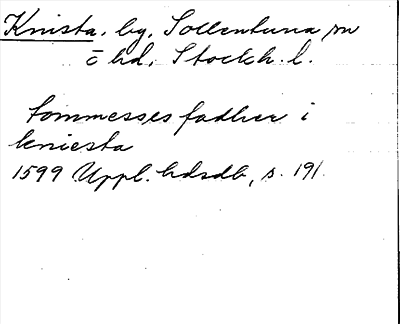 Knista, by, Sollentuna sn
o hd, Stockh. l.
Sommesses fadher i
kniesta
1599 Uppl. hdsdb, s. 191.